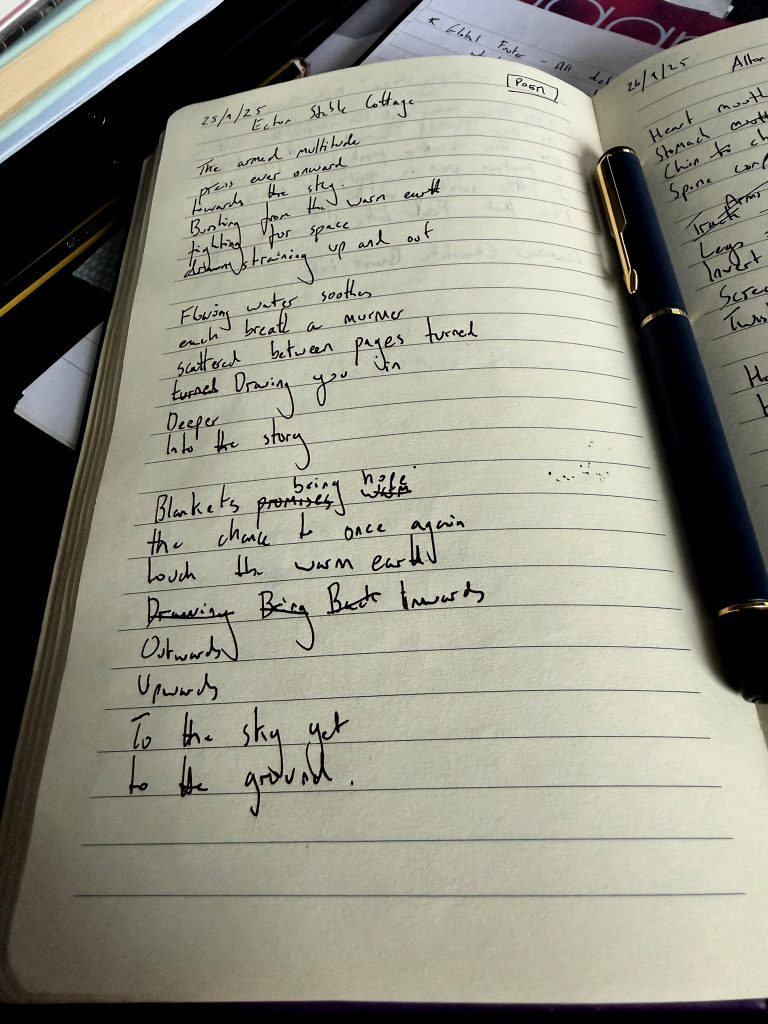 * Global Footer - All
25/1/25
POEM
Echor Stable Cottage
The armed multitude
press ever onward
towards the sky.
Bursting from the warm earth
fighting for space
straining up and out
Flowing water soothes
each breath a murmer
scattered between pages turned
turned Drawing you in
Deeper
Into the story
Blankets promises warm
being hope
the chance to once again
touch the warm earth
Drawing Being Back Inwards
Outwards
Upwards
To the sky yet
to the ground.
26/1/25
Heart mouth
Stomach mouth
Chin to
Spine
Track Arms
Legs
Invert